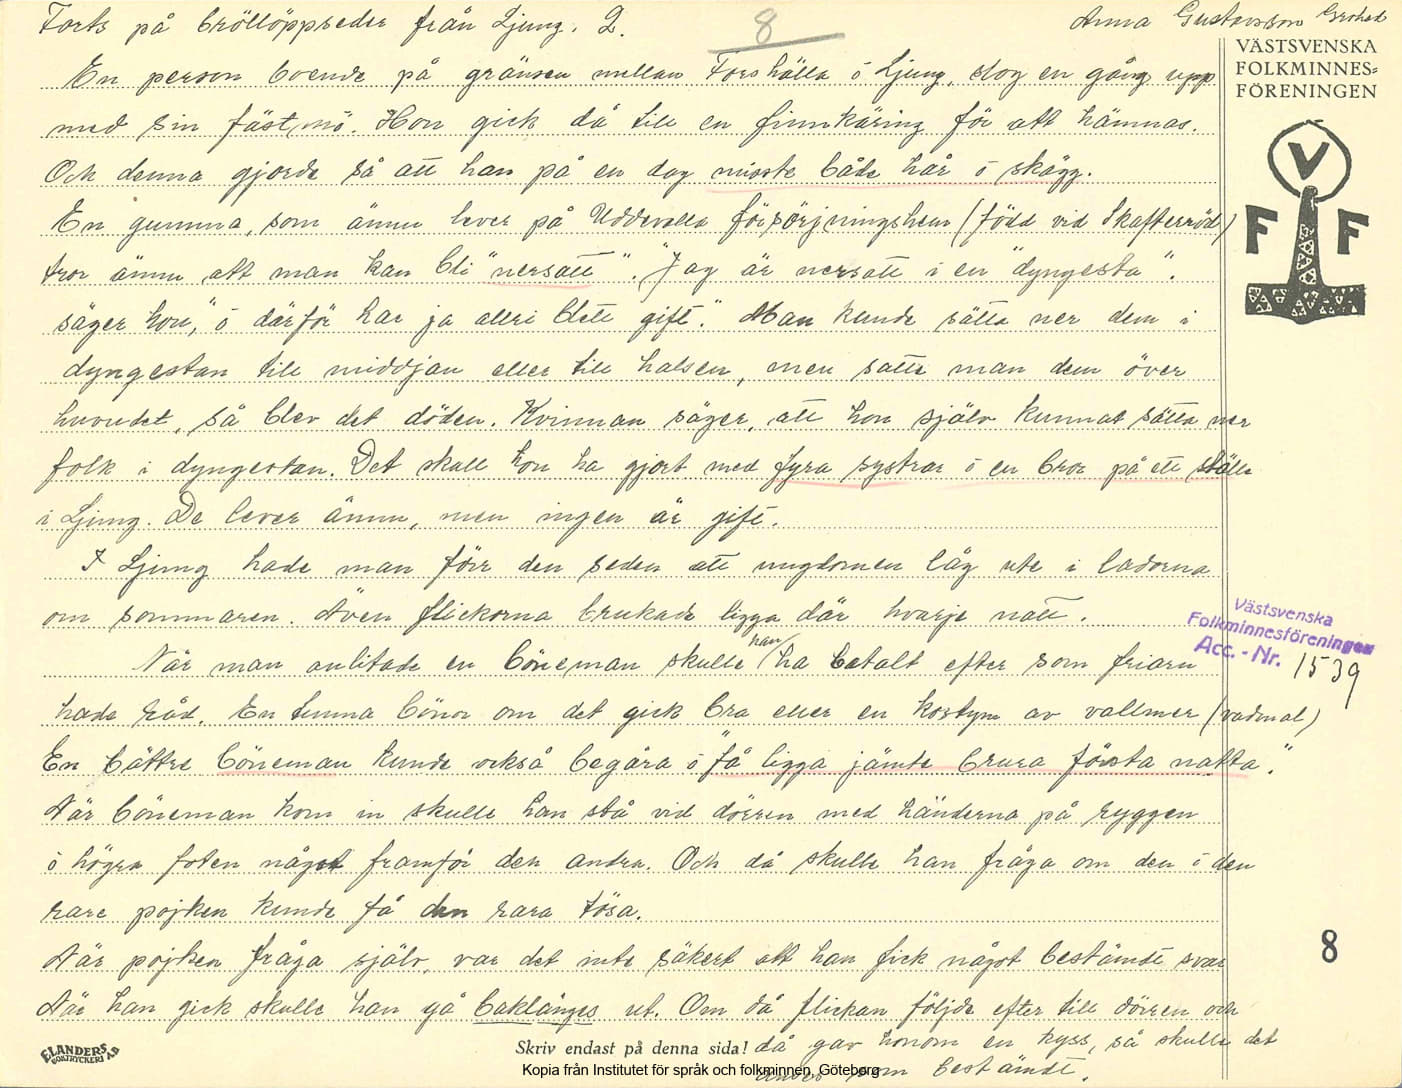 Forts på bröllöppseder från Ljung. 2.
8
Anna Gustavsson
VÄSTSVENSKA
FOLKMINNES=
FÖRENINGEN
V
F F
En person boende på gränsen mellan Forshälla ö Ljung, slog en gång upp
med sin fästmö. Hon gick då till en finnkäring för att hämnas.
Och denna gjorde så att han på en dag miste både hår ö skägg.
En gumma, som ännu lever på Uddevalla försörjningshem (född vid Skafteröd)
tror ännu att man kan bli "nersatt". "Jag är nersatt i en "dyngesta".
säger hon," ö därför har ja allri blett gift". Man kunde sätta ner dem i
dyngestan till middjan eller till halsen, men satte man dem över
huvudet, så blev det döden. Kvinnan säger, att hon själv kunnat sätta ner
folk i dyngestan. Det skall hon ha gjort med fyra systrar ö en bror på ett ställe
i Ljung. De lever ännu, men ingen är gift.
I Ljung hade man förr den seden att ungdomen låg ute i ladorna
om sommaren. Även flickorna brukade ligga där hvarje natt.
När man anlitade en böneman skulle han ha betalt efter som friarn
hade råd. En tunna bönor om det gick bra eller en kostym av vallmer (vadmal)
En bättre böneman kunde också begära ö "få ligga jämte brura första natta".
När böneman kom in skulle han stå vid dörren med händerna på ryggen
ö högra foten något framför den andra. Och då skulle han fråga om den ö den
rare pojken kunde få den rara tösa.
När pojken fråga själv, var det inte säkert att han fick något bestämdt svar
När han gick skulle han gå baklänges ut. Om då flickan följde efter till dörren och
då gav honom en kyss, så skulle det
anses som bestämdt.
Västsvenska
Folkminnesföreningen
Acc. - Nr. 1539
8
ELANDERS
BOKTRYCKERI AB
Skriv endast på denna sida!
Kopia från Institutet för språk och folkminnen, Göteborg